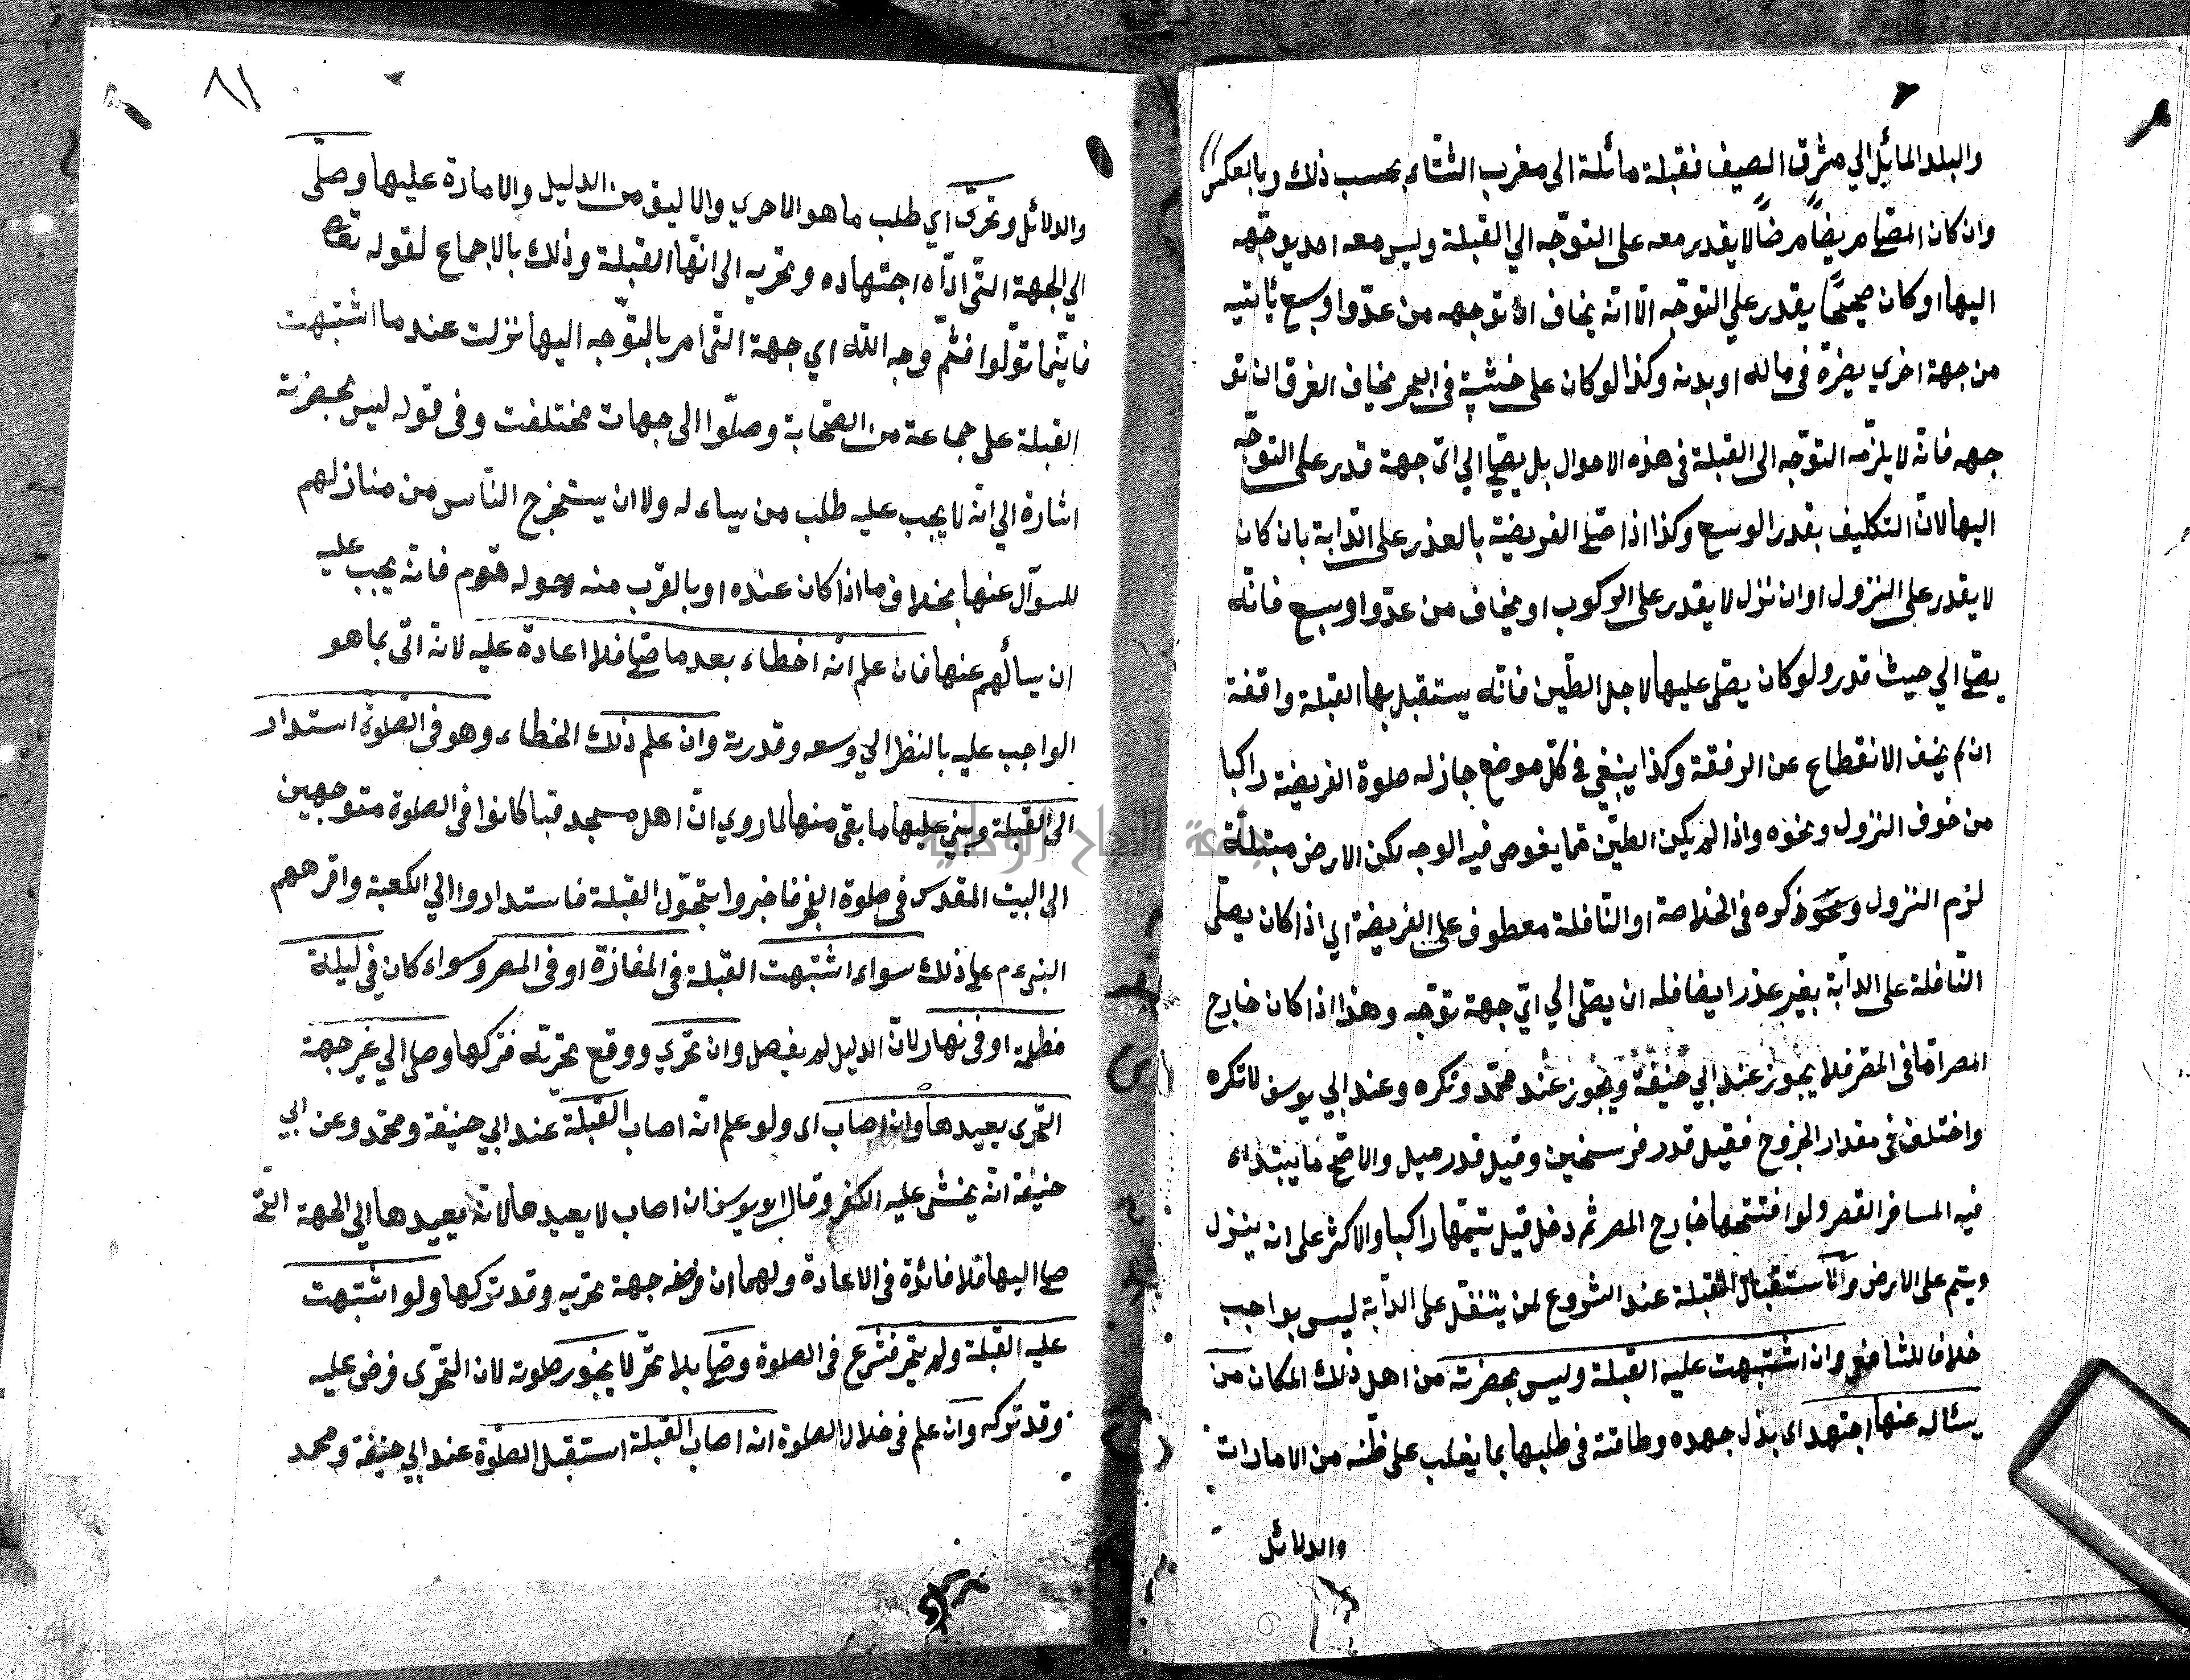 والبلد المائل الي مشرق الصيف فقبلة مائلة الى مغرب الشتاء بحسب ذلك وبالعكس
وان كان المصلي مريضاً مرضاً لا يقدر معه على التوجّه الي القبلة وليس معه احد يوجّهه
اليها او كان صحيحًا يقدر علي التوجّه الّا انّه يخاف ان توجهه من عدّوا وسبع ياتيه
من جهة اخري يضرّه في ماله او بدنه وكذا لو كان على خشبة في البحر يخاف الغرق ان تو
جهه فانّه لا يلزمه التوّجه الى القبلة في هذه الاحوال بل يصلي الي ايّ جهة قدر على التوجّه
اليها لانّ التكليف بقدر الوسع وكذا اذا صلى الفريضة بالعذر على الدّابة بان كان
لا يقدر على النزول او ان نزل لا يقدر على الركوب او يخاف من عدّو او سبع فانّه
يصلي الي حيث قدر ولو كان يصلّى عليها لاجل الطّين فانّه يستقبل بها القبلة واقفة
ان لم يخف الانقطاع عن الرفقة وكذا ينبغي في كلّ موضع جاز له صلوة الفريضة راكبا
من خوف النزول ونحوه واذا لم يكن الطيّن ممّا يغوص فيه الوجه لكن الارض مبتلّة
لزم النزول ونحوه ذكره في الخلاصة او النّافلة معطوف على الفريضة اي اذا كان يصلّى
النّافلة على الدابّة بغير عذر ايضا فله ان يصلّى الي ايّ جهة توّجه وهذا اذا كان خارج
المصر امّا في المصر فلا يجوز عند ابي حنيفة ويجوز عند محمّد وتكره وعند ابي يوسف لا تكره
واختلف في مقدار الخروج فقيل قدر فرسخين وقيل قدر ميل والاصّح ما يبتداء
فيه المسافر القصر ولو افتتحها خارج المصر ثم دخل قيل يتّمها راكبا والاكثر على انه ينزل
ويتم على الارض والاستقبال القبلة عند الشروع لمن يتنفل على الدّابة ليس بواجب
خلافا للشافعي وان اشتبهت عليه القبلة وليس بحضرته من اهل ذلك المكان من
يسئاله عنها اجتهد اى بذل جهده وطاقته في طلبها بما يغلب على ظنّه من الامارات
والدلائل
٨١
والدلائل وتحرّى اي طلب ما هو الاحري والاليق من الدليل والامارة عليها وصلّى
الي الجهة التّى ادّاه اجتهاده وتحريه الى انّها القبلة وذلك بالاجماع لقوله تعالى
فاينما تولّوا فثّم وجه الله اي جهة التى امر بالتوّجه اليها نزلت عندما اشتبهت
القبلة على جماعة من الصّحابة وصلّوا الى جهات مختلفت وفى قوله ليس بحضرته
اشارة الي انّه لا يجب عليه طلب من يساءله ولا ان يستخرج النّاس من منازلهم
للسوّال عنها بخلاف ما اذا كان عنده او بالقرب منه وحوله قوم فانّه يجب عليه
ان يسألهم عنها فان علم انّه اخطاء بعد ما صلى فلا اعادة عليه لانّه اتى بما هو
الواجب عليه بالنظر الي وسعه وقدرته وان علم ذلك الخطاء وهو في الصّلوة استدار
الى القبلة وبني عليها ما بقى منها لما روي انّ اهل مسجد قبا كانوا في الصلوة متوجهين
الى البيت المقدس في صلوة الفجر فاخبروا بتحوّل القبلة فاستداروا الي الكعبة واقرهم
النبي عم على ذلك سواء اشتبهت القبلة في المفازة او فى المصر وسواء كان في ليلة
مظلمة او في نهار لانّ الدليل لم يفصل وان تحري ووقع تحرّيه فتركها وصلى الي غير جهة
التحرى يعيدها وان اصاب اى ولو علم انّه اصاب القبلة عند ابي حنيفة ومحمّد وعن ابي
حنيفة انّه يخشى عليه الكفر وقال ابو يوسف ان اصاب لا يعيدها لانّه يعيدها الي الجهة التى
صلى اليها فلا فائدة في الاعادة ولهما ان فرضه جهة تحريه وقد تركها ولو اشتبهت
عليه القبلة ولم يتحر فشرع في الصلوة وصلى بلا تحرّ لا يجوز صلوته لان التحرّى فرض عليه
وقد تركه وان علم في خلال الصلوة انه اصاب القبلة استقبل الصّلوة عند ابي حنيفة ومحمد
جامعة النجاح الوطنية